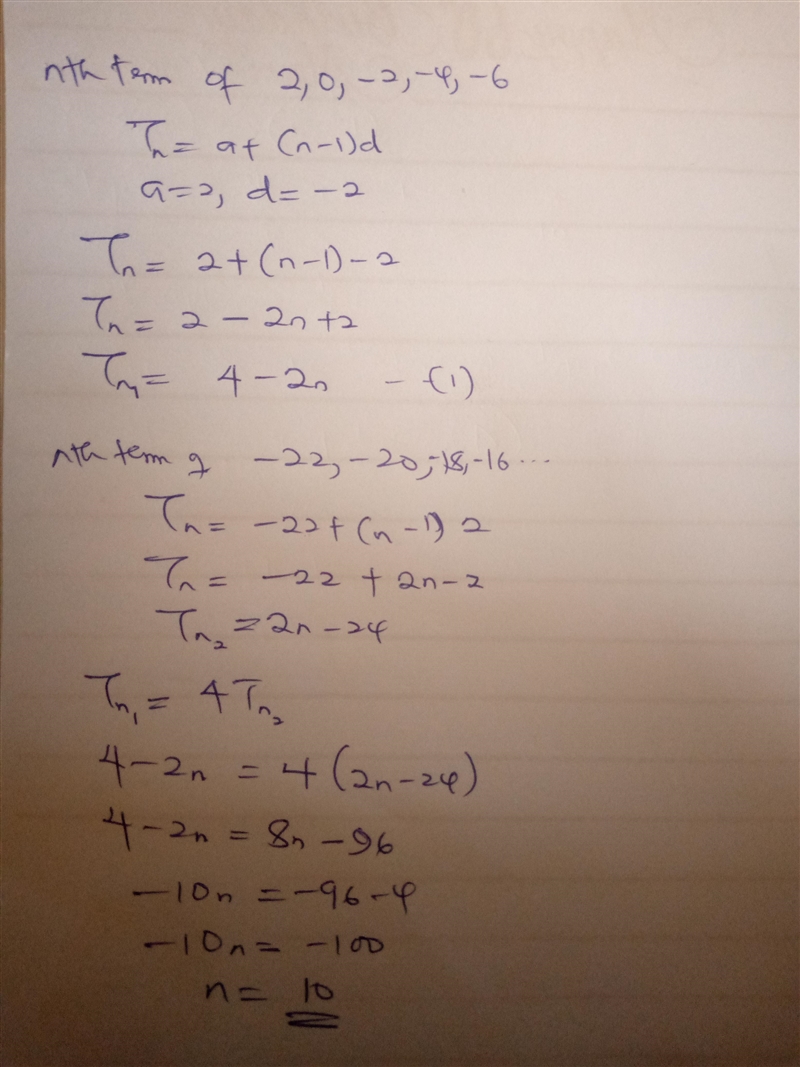 nth term of 2, 0, -2, -4, -6
Tn = a + (n-1)d
a = 2, d = -2
Tn = 2 + (n-1) -2
Tn = 2 - 2n + 2
Tn₁ = 4 - 2n - (1)
nth term of -22, -20, -18, -16 ...
Tn = -22 + (n-1) 2
Tn = -22 + 2n - 2
Tn₂ = 2n - 24
Tn₁ = 4Tn₂
4 - 2n = 4(2n - 24)
4 - 2n = 8n - 96
-10n = -96 - 4
-10n = -100
n = 10